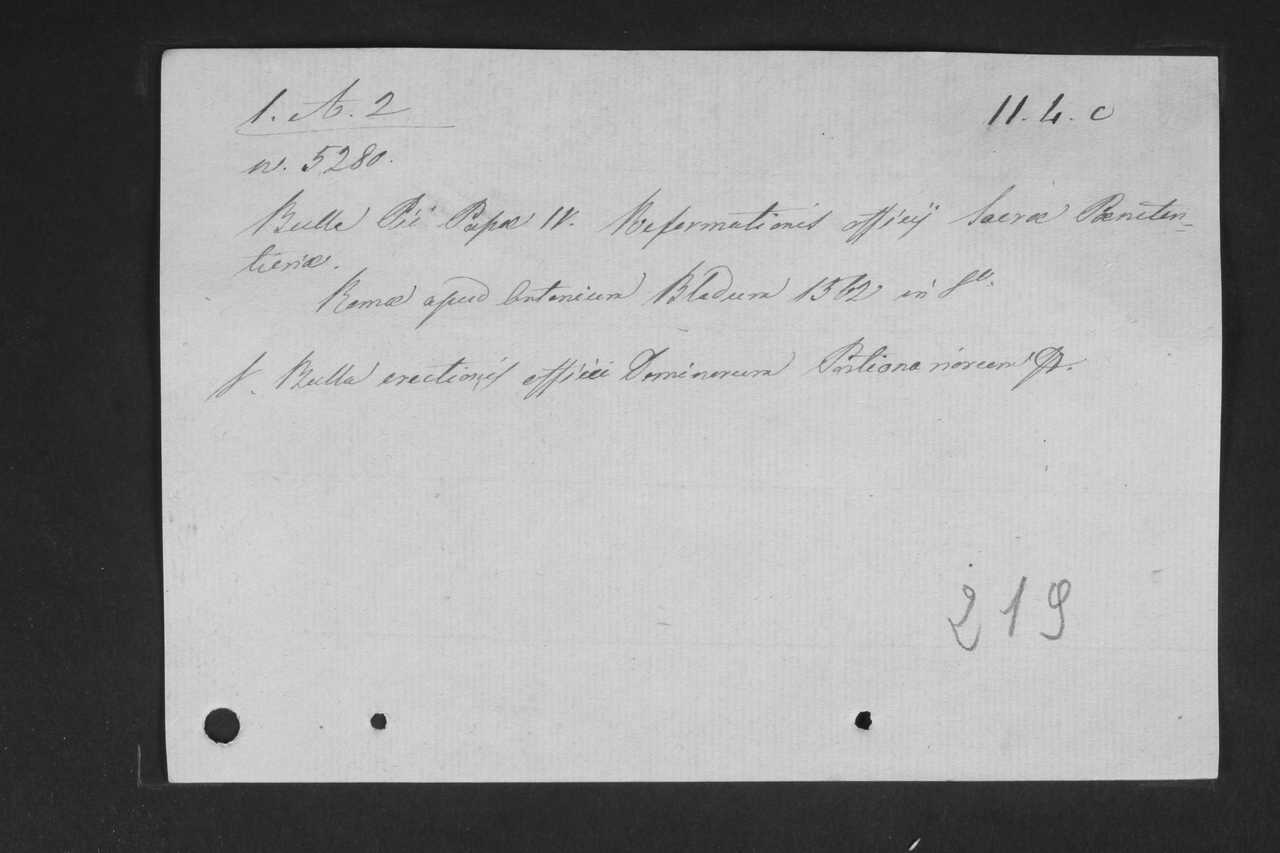 1. A. 2
11. 4. c
n. 5280.
Bulla Pii Papæ IV. Reformationis officij Sacræ Pœniten-
tieriæ.
Romæ apud Antonium Bladum 1562 in 8º.
V. Bulla erectionis officii Dominorum Portionariorum
219